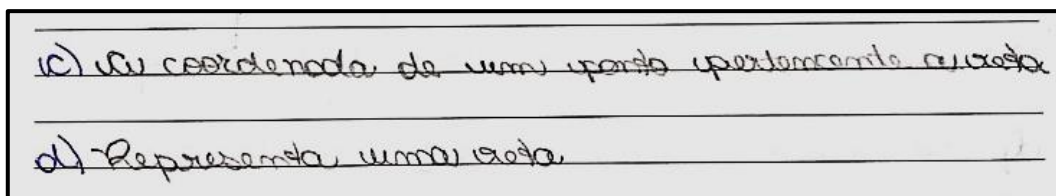 c) A coordenada de um ponto pertencente a reta
d) Representa uma reta